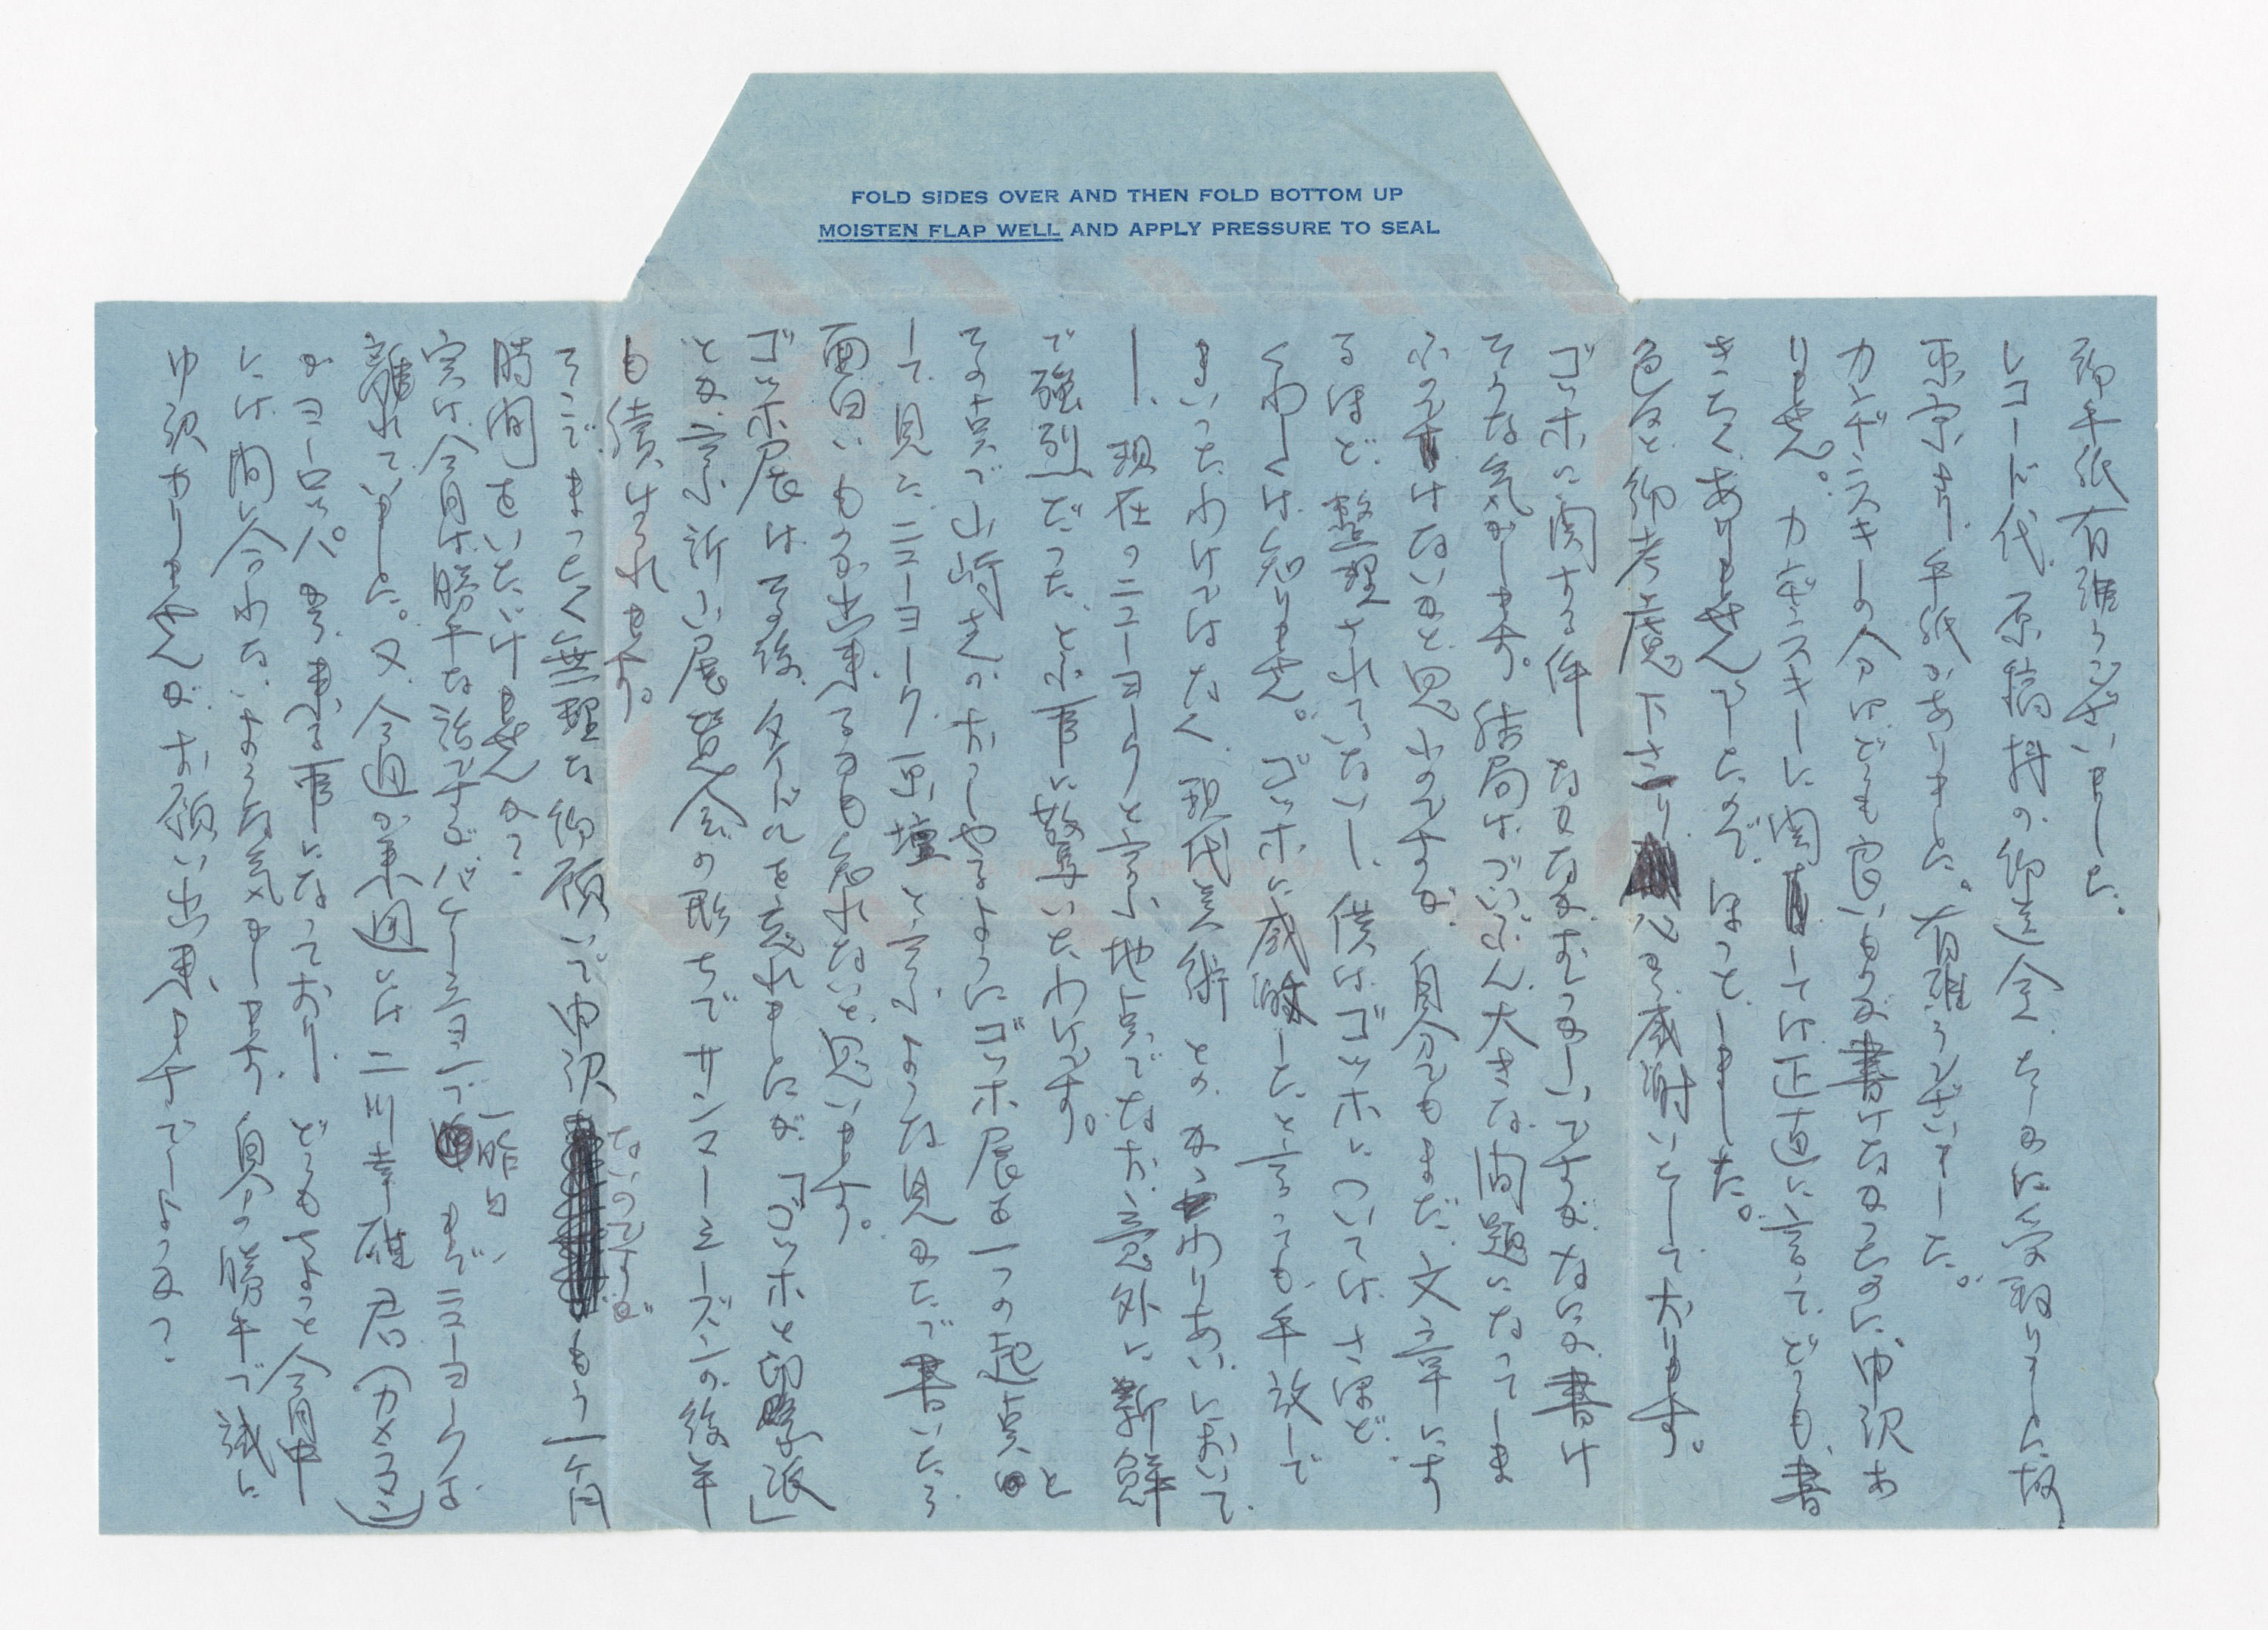 FOLD SIDES OVER AND THEN FOLD BOTTOM UP
MOISTEN FLAP WELL AND APPLY PRESSURE TO SEAL
御手紙有難うございました。
レコード代、原稿料の御送金、たしかに受取りました故
東京より手紙がありました。有難うございました。
カンディンスキーの今日どうも良いものが書けなかったのに、申訳あ
りません。カンディンスキーに関しては正直に言って、どうも、書
きたくありませんでしたので、ほっとしました。
色々と御考慮下さり 心から感謝いたしております。
ゴッホに関する件、なかなかむつかしいですがなにか書け
そうな気がします。結局は、ずいぶん大きな問題になってしま
ふのではないかと思ふのですが、自分でもまだ、文章にす
るほど、整理されていないし、僕はゴッホについては、さほど
くわしくは知りません。ゴッホに感激したと言っても、手放しで
まいったわけではなく、現代美術とのかかわりあいにおいて、
し、現在のニューヨークと言ふ地点でなお意外に新鮮
で強烈だった、と云ふ事に驚いたわけです。
その点で山崎さんがおっしゃるようにゴッホ展を一つの起点と
して見た、ニューヨーク画壇と言ふような見かたで書いたら
面白いものが出来るかも知れないと思います。
ゴッホ展はその後、タイトルを忘れましたが「ゴッホと表現主義」
とか言ふ新しい展覧会の形ちでサンマーシーズンの後半
も続けられます。
そこでまったく無理な御願いで申訳ないのですが もう一ヶ月
時間をいただけませんか?
実は今月は勝手な話ですがバケーションで一昨日、までニューヨークを
離れていました。又、今週から来週には二川幸雄君(カメラマン)
がヨーロッパから来る事になっており、どうもちょっと今月中
には間に合わないような気がします。自分の勝手で誠に
申訳ありませんがお願い出来ますでしょうか?